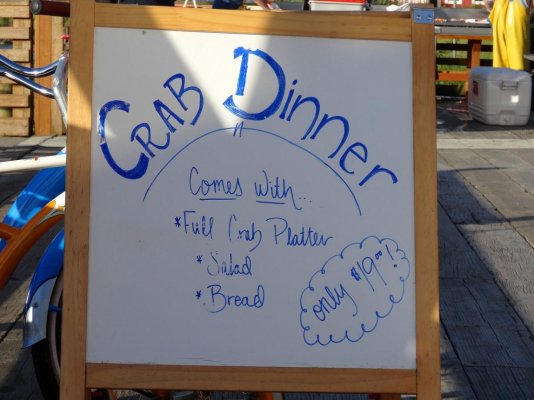 Crab Dinner
Comes With...
*Full Crab Platter
*Salad
*Bread
only $19.00!